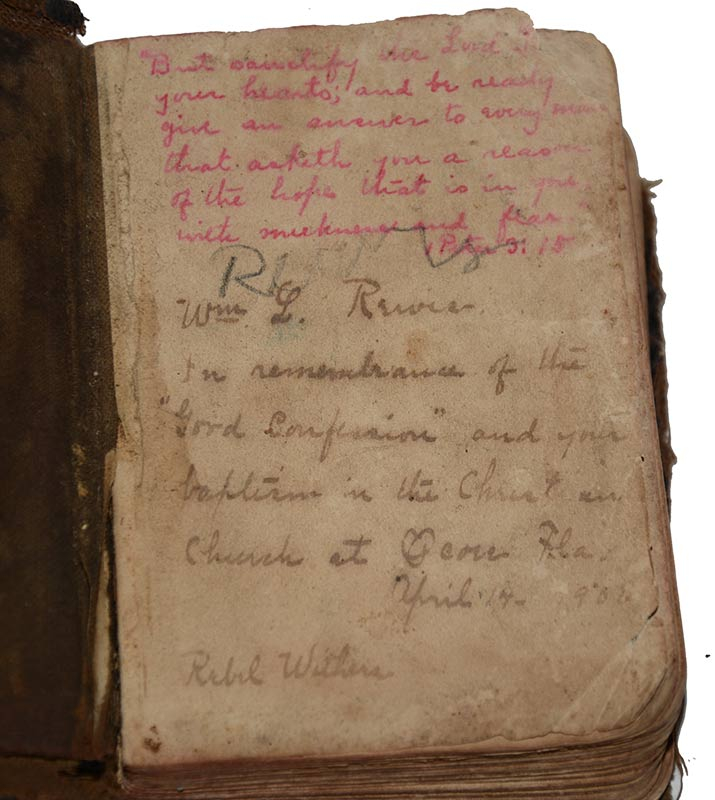 "But sanctify the Lord
your hearts; and be ready
give an answer to every man
that asketh you a reason
of the hope that is in you,
with meekness and fear."
Peter 3:15
Wm L.
In remembrance of the
"Good Confession" and your
baptism in the Christian
Church at Ocoee Fla.
April 14
Rebel Withers